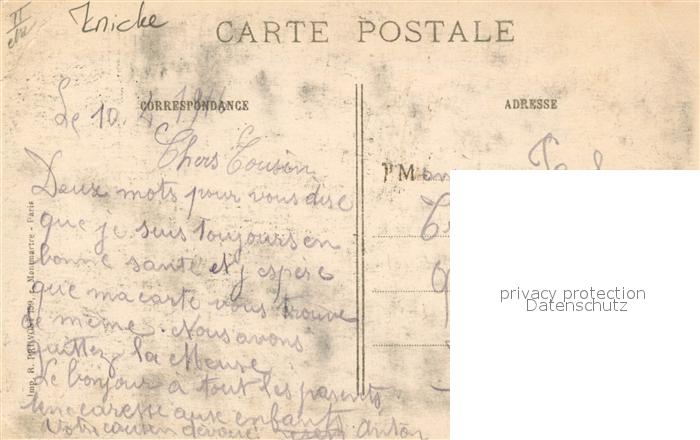 Knicke
CARTE POSTALE
CORRESPONDANCE
ADRESSE
Le 10 1916
Chers Cousin
Deux mots pour vous dire
que je suis toujours en
bonne santé et j espère
que ma carte vous trouve
de même. Nous avons
quittez la Meuse
Le bonjour à tout les parents
Une caresse aux enfants
Votre cousin dévoué Anton
M
Imp. R. PREVOST Montmartre - Paris
privacy protection
Datenschutz